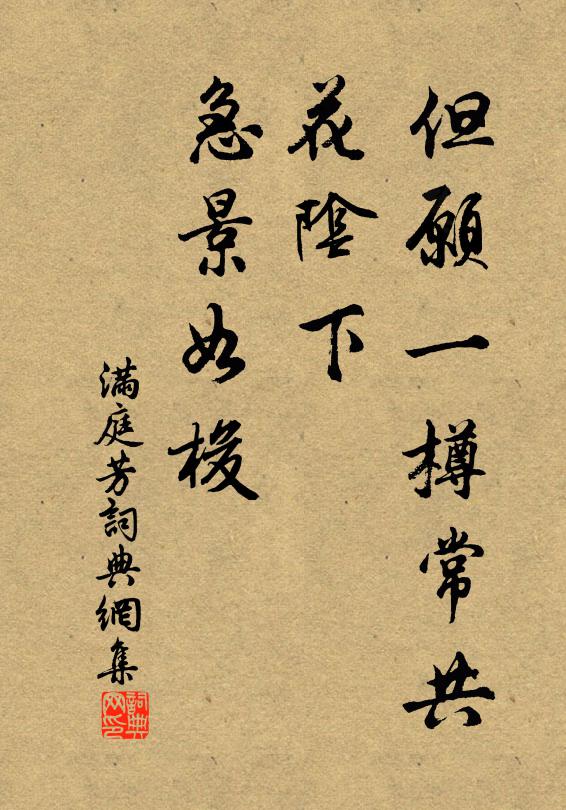 但願一樽常共
花陰下
急景如梭
滿庭芳詞典網集
詞典
网印